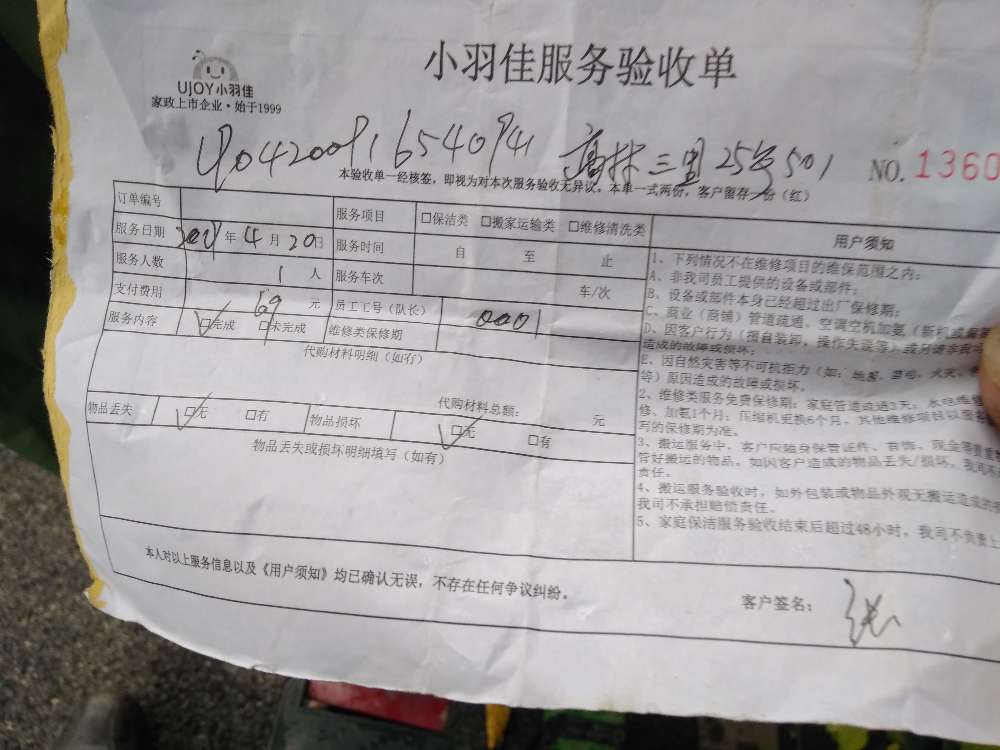 小羽佳服务验收单
UJOY小羽佳
家政上市企业·始于1999
904200916540941 高林三里25号501
NO. 1360
本验收单一经核签，即视为对本次服务验收无异议，本单一式两份，客户留存一份（红）
订单编号 服务项目 □保洁类 □搬家运输类 □维修清洗类
服务日期 年 4 月 20 日 服务时间 自 至 止
服务人数 1 人 服务车次 车/次
支付费用 69 元 员工工号（队长） 0001
服务内容 □完成 □未完成 维修类保修期
代购材料明细（如有）
代购材料总额： 元
物品丢失 □无 □有 物品损坏 □无 □有
物品丢失或损坏明细填写（如有）
用户须知
1、下列情况不在维修项目的维保范围之内：
A、非我司员工提供的设备或部件；
B、设备或部件本身已经超过出厂保修期；
C、商业（商铺）管道疏通、空调空机加氨（新机或
D、因客户行为（擅自装卸、操作失误等）或
造成的故障或损坏；
E、因自然灾害等不可抗拒力（如：地震、雷电、火灾、
等）原因造成的故障或损坏。
2、维修类服务免费保修期：家庭管道疏通3天，水电维修
修、加氨1个月；压缩机更换6个月，其他维修项目以
写的保修期为准。
3、搬运服务中，客户应随身保管证件、首饰、现金等贵重
管好搬运的物品。如因客户造成的物品丢失/损坏，我司不
责任。
4、搬运服务验收时，如外包装或物品外观无搬运造成的
我司不承担赔偿责任。
5、家庭保洁服务验收结束后超过48小时，我司不负责上
本人对以上服务信息以及《用户须知》均已确认无误，不存在任何争议纠纷。
客户签名： 张